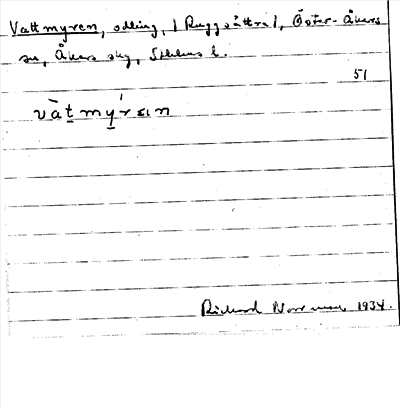 Vattmyren, odling, 1 Ruggsättra 1, Öster-Åkers
sn, Åkers skg, Sthlms l.
51
vàt̲mý̲rɛın
Richard Norrman 1934.